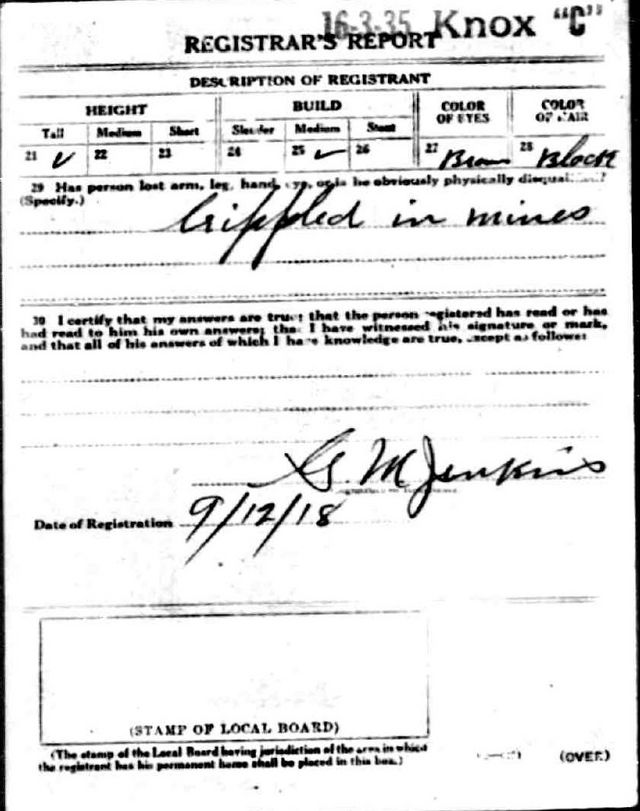 16-3-35 Knox "C"
REGISTRAR'S REPORT
DESCRIPTION OF REGISTRANT
HEIGHT BUILD COLOR OF EYES COLOR OF HAIR
Tall Medium Short Slender Medium Stout
21 ✓ 22 23 24 25 ✓ 26 27 Brown 28 Black
29 Has person lost arm, leg, hand, eye, or is he obviously physically disqualified?
(Specify.)
Crippled in mines
30 I certify that my answers are true; that the person registered has read or has
had read to him his own answers; that I have witnessed his signature or mark,
and that all of his answers of which I have knowledge are true, except as follows:
M Jenkins
Date of Registration 9/12/18
(STAMP OF LOCAL BOARD)
(The stamp of the Local Board having jurisdiction of the area in which
the registrant has his permanent home shall be placed in this box.)
(OVER)